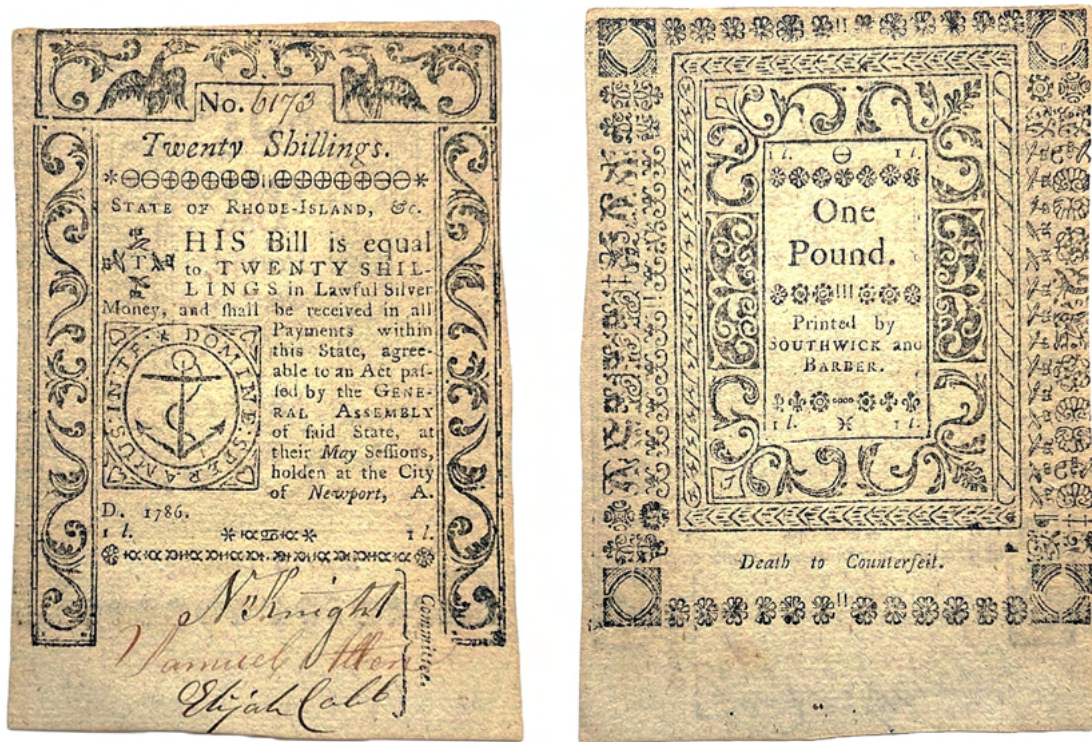 No. 6173
Twenty Shillings.
STATE OF RHODE-ISLAND, &c.
THIS Bill is equal
to TWENTY SHIL-
LINGS in Lawful Silver
Money, and shall be received in all
Payments within
this State, agree-
able to an Act paſ-
ſed by the GENE-
RAL ASSEMBLY
of ſaid State, at
their May Seſſions,
holden at the City
of Newport, A.
D. 1786.
IN TE * DOMINE SPERAMUS
1 l. 1 l.
N. Knight
Samuel Allen
Elijah Cobb
Committee.
1 l. 1 l.
One
Pound.
Printed by
SOUTHWICK and
BARBER.
1 l. 1 l.
Death to Counterfeit.